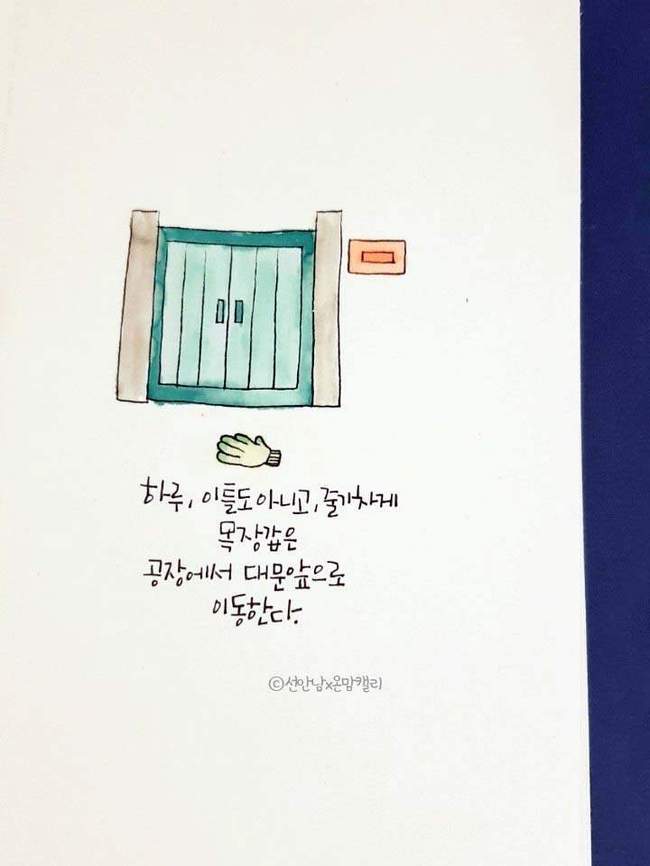 하루, 이틀도 아니고, 줄기차게
목장갑은
공장에서 대문앞으로
이동한다.
ⓒ선안남x온맘캘리